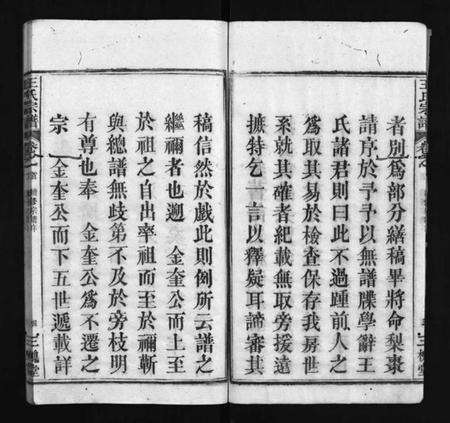 王氏宗譜
者別爲部分繕稿畢將命梨棗
請序於予予以無譜牒學辭王
氏諸君則曰此不過踵前人之
爲取其易於檢查保存我房世
系就其確者紀載無取旁援遠
摭特乞一言以釋疑耳諦審其
三槐堂
稿信然於戲此則例所云譜之
繼禰者也邇　金奎公而上至
於祖之自出率祖而至於禰蘄
與總譜無歧第不及於旁枝明
有尊也奉　金奎公爲不遷之
宗　金奎公而下五世遞載詳
王氏宗譜
卷首
三槐堂